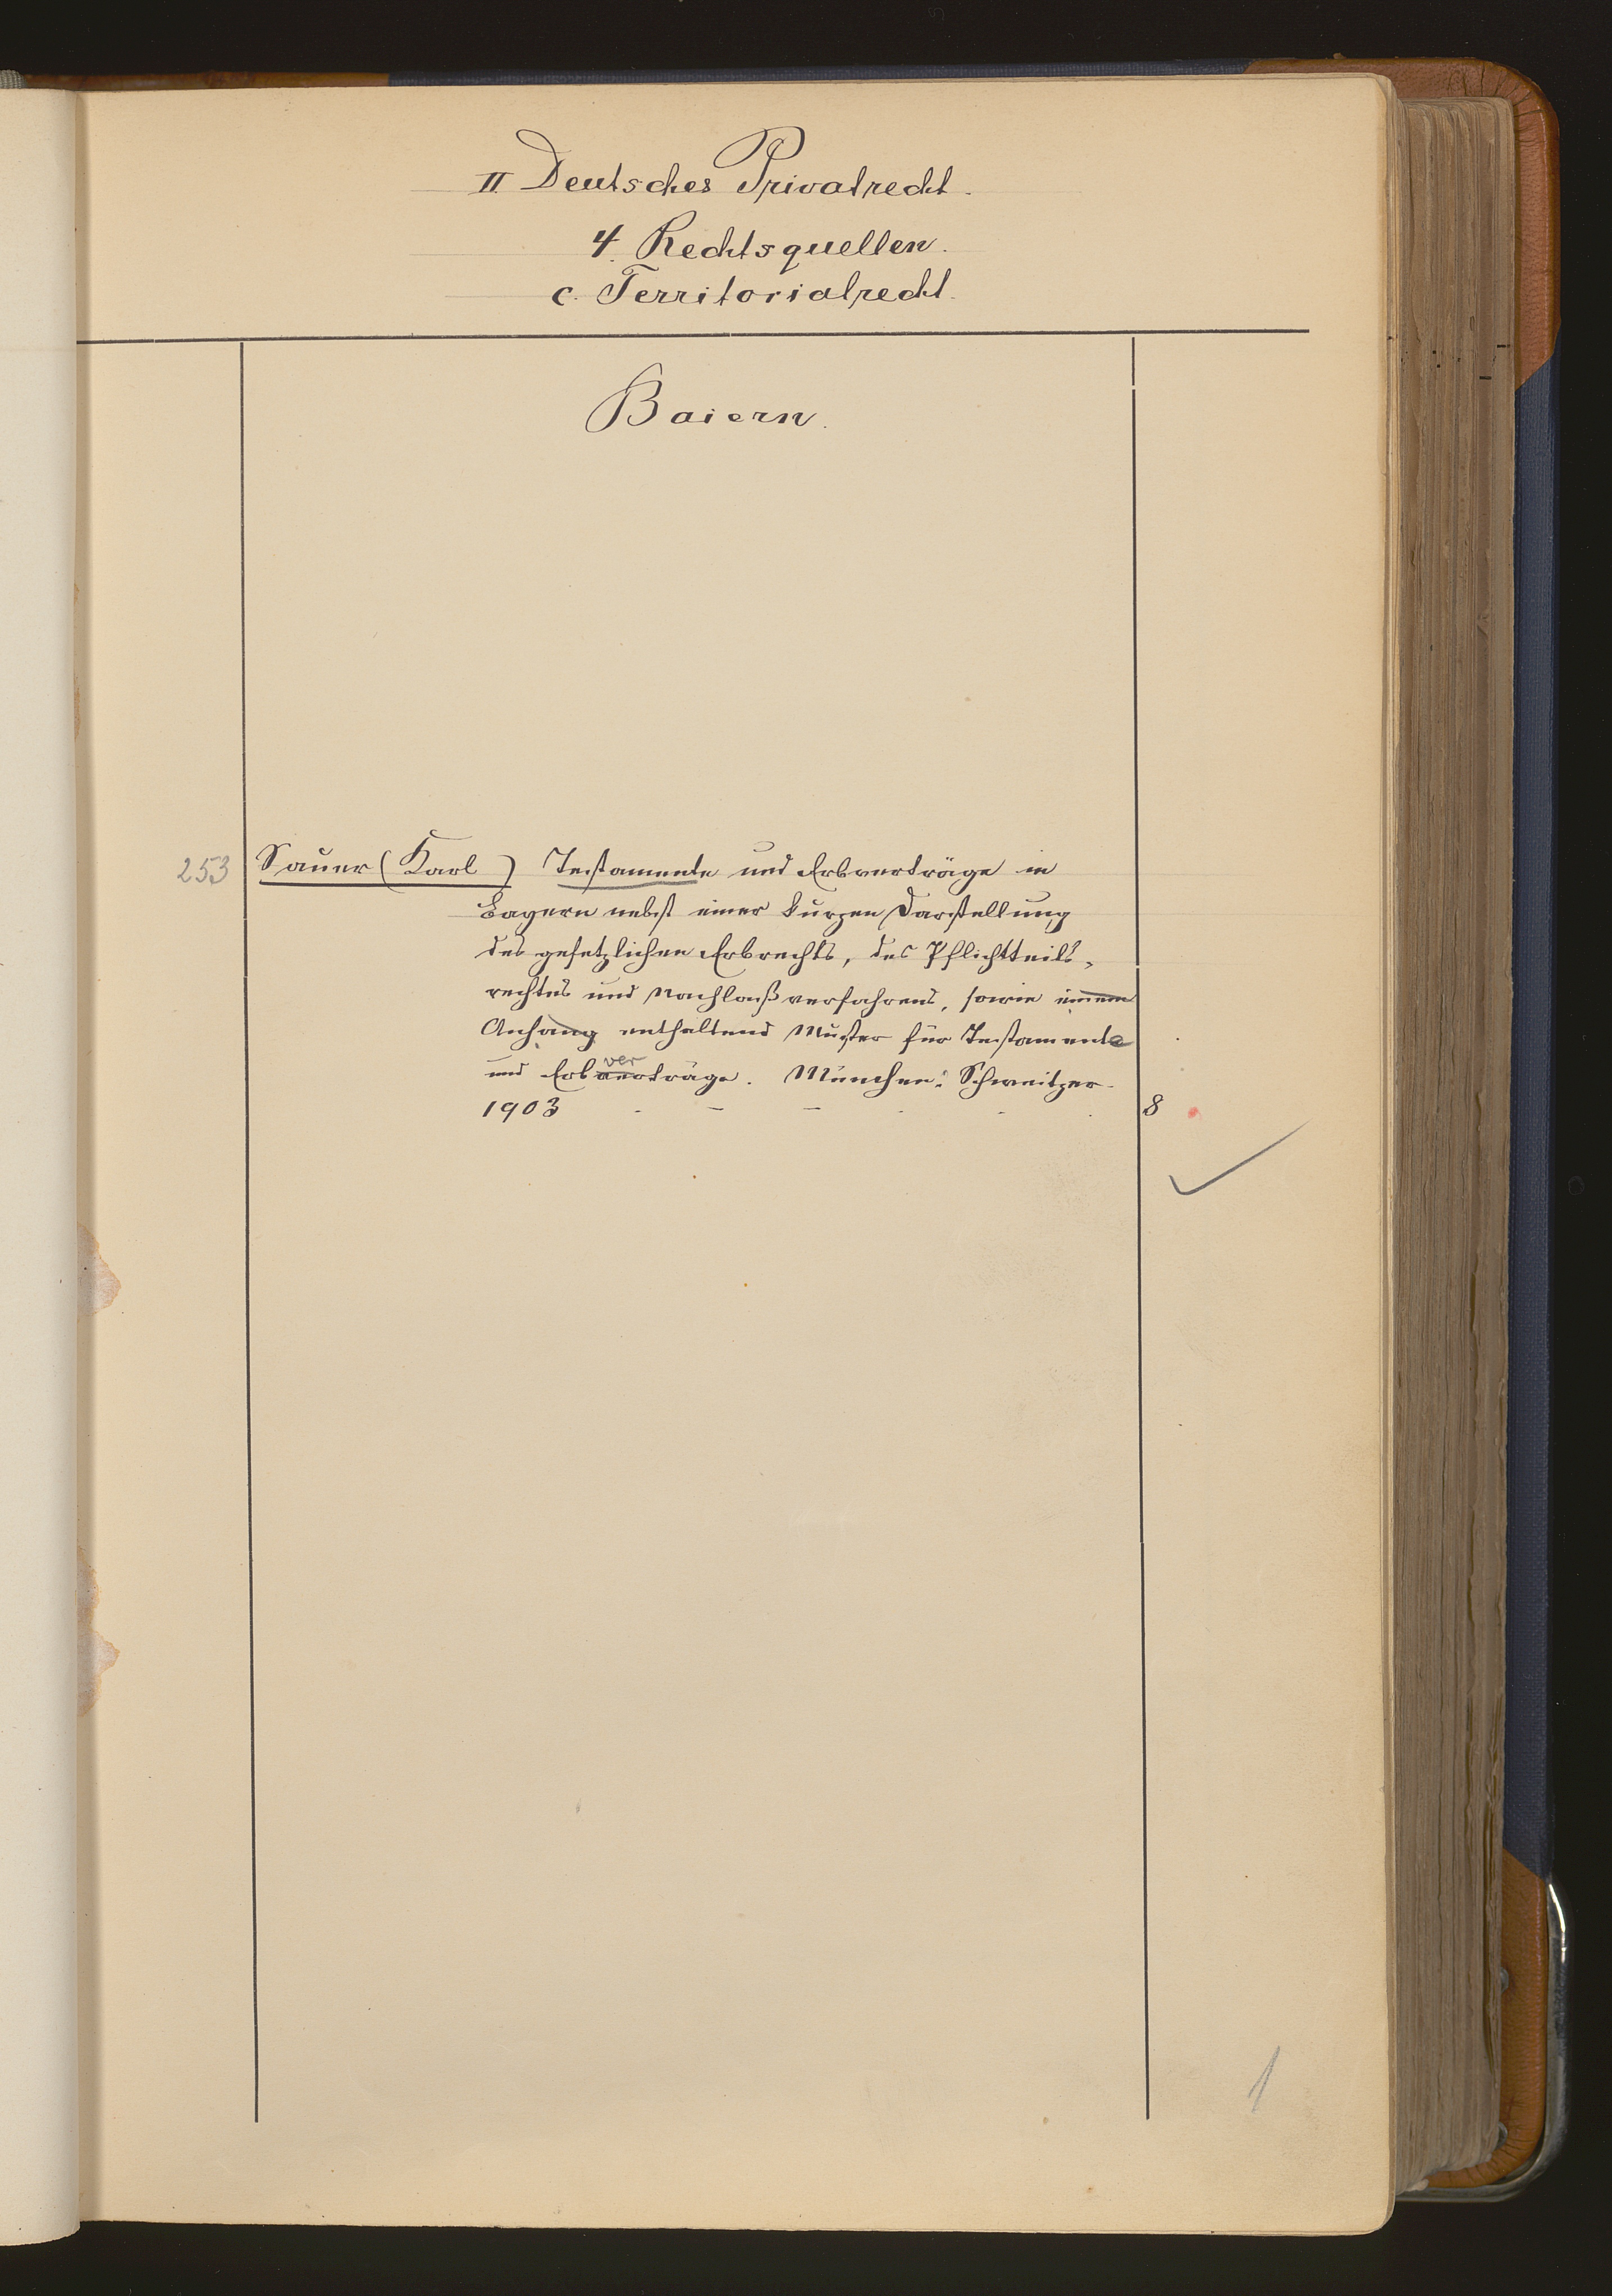 II Deutsches Privatrecht.
4. Rechtsquellen.
c. Territorialrecht.
Baiern.
253 Sauer (Karl) Testamente und Erbverträge in
Bayern nebst einer kurzen Darstellung
des gesetzlichen Erbrechts, des Pflichtteils-
rechtes und Nachlaßverfahrens, sowie einem
Anhang enthaltend Muster für Testamente
ver
und Erbverträge. München: Schweitzer
1903 - - - - - - 8
1